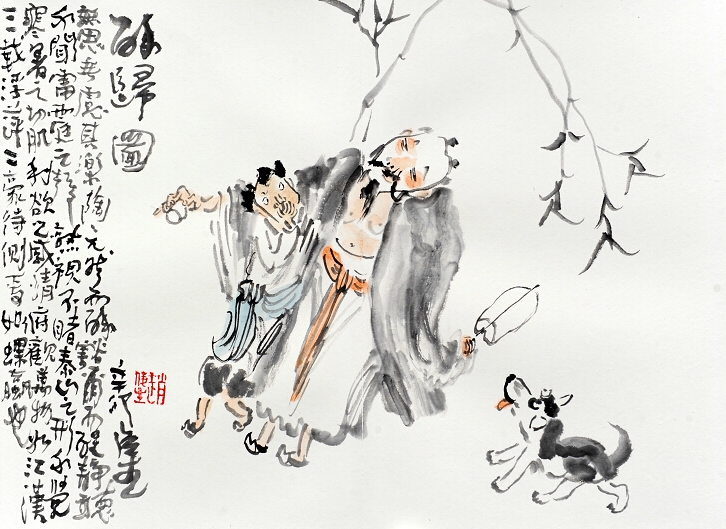 醉歸圖
無思无慮其樂陶兀然而醉豁爾而醒靜聽
不聞雷霆之聲熟視不睹泰山之形不覺
寒暑之切肌利欲之感情俯觀萬物如江漢
三載浮萍二豪侍側焉如螺蠃也
辛卯